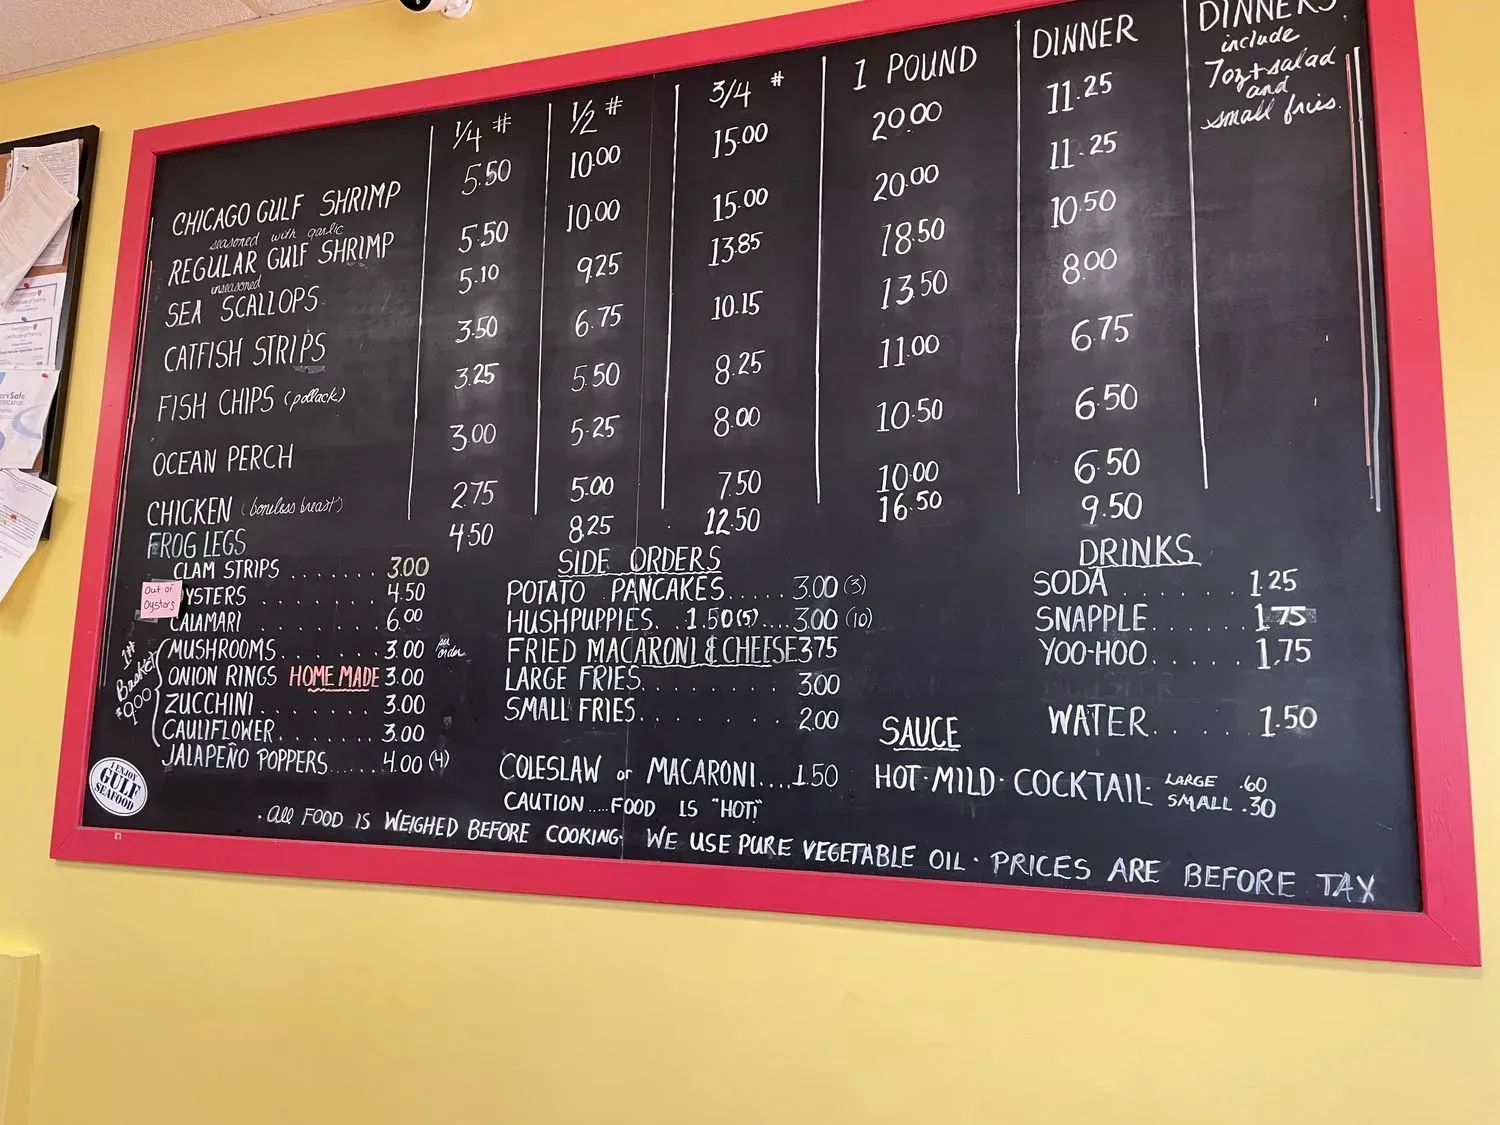 1/4 # 1/2 # 3/4 # 1 POUND DINNER DINNERS
include
7oz + salad
and
small fries.
CHICAGO GULF SHRIMP 5.50 10.00 15.00 20.00 11.25
seasoned with garlic
REGULAR GULF SHRIMP 5.50 10.00 15.00 20.00 11.25
unseasoned
SEA SCALLOPS 5.10 9.25 13.85 18.50 10.50
CATFISH STRIPS 3.50 6.75 10.15 13.50 8.00
FISH CHIPS (pollack) 3.25 5.50 8.25 11.00 6.75
OCEAN PERCH 3.00 5.25 8.00 10.50 6.50
CHICKEN (boneless breast) 2.75 5.00 7.50 10.00 6.50
FROG LEGS 4.50 8.25 12.50 16.50 9.50
CLAM STRIPS ....... 3.00
Out of
Oysters
YSTERS ....... 4.50
CALAMARI ....... 6.00
1#
Basket
$9.00
MUSHROOMS ..... 3.00 per order
ONION RINGS HOME MADE 3.00
ZUCCHINI ....... 3.00
CAULIFLOWER ...... 3.00
JALAPEÑO POPPERS ..... 4.00 (4)
SIDE ORDERS
POTATO PANCAKES ..... 3.00 (3)
HUSHPUPPIES.. 1.50 (5) .... 3.00 (10)
FRIED MACARONI & CHEESE 3.75
LARGE FRIES ....... 3.00
SMALL FRIES ....... 2.00
COLESLAW or MACARONI .... 1.50
CAUTION ..... FOOD IS "HOT!"
DRINKS
SODA ...... 1.25
SNAPPLE ..... 1.75
YOO-HOO ..... 1.75
WATER ..... 1.50
SAUCE
HOT · MILD · COCKTAIL · LARGE .60
SMALL .30
I ENJOY
GULF
SEAFOOD
· All FOOD IS WEIGHED BEFORE COOKING · WE USE PURE VEGETABLE OIL · PRICES ARE BEFORE TAX